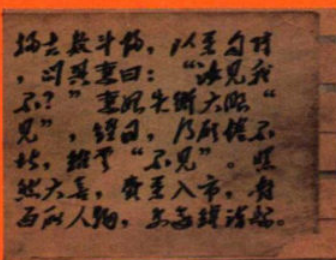 数斗归,以叶自障
,问其妻曰:“汝见我
不?”妻始“
见”,经日,乃厌倦不
堪,绐云“不见”。嘿
然大喜,赍叶入市,对
面取人物,吏遂缚诣县。